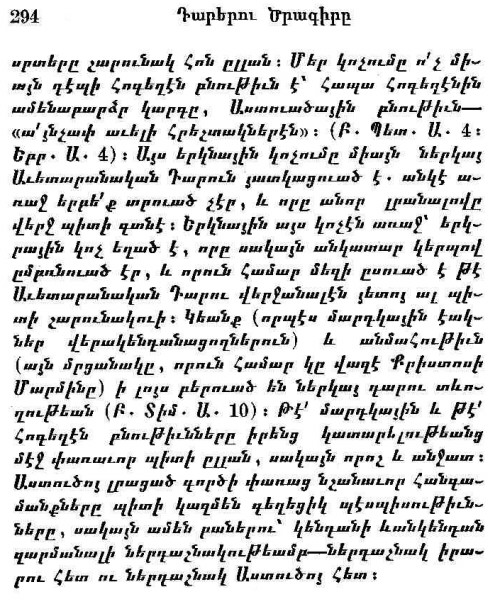 294 Դարերու Ծրագիրը
սրտերը շարունակ հոն ըլլան։ Մեր կոչումը ո՛չ մի-
այն դէպի հոգեղէն բնութիւն է՝ հապա հոգեղէնին
ամենաբարձր կարգը, Աստուածային բնութիւն—
«ա՛յնչափ աւելի հրեշտակներէն»։ (Բ․ Պետ․ Ա․ 4։
Եբր․ Ա․ 4)։ Այս երկնային կոչումը միայն ներկայ
Աւետարանական Դարուն յատկացուած է․ անկէ ա-
ռաջ երբե՛ք տրուած չէր, և որը անոր լրանալովը
վերջ պիտի գտնէ։ Երկնային այս կոչէն առաջ՝ երկ-
րային կոչ եղած է, որը սակայն անկատար կերպով
ըմբռնուած էր, և որուն համար մեզի ըսուած է թէ
Աւետարանական Դարու վերջանալէն յետոյ ալ պի-
տի շարունակուի։ Կեանք (որպէս մարդկային էակ-
ներ վերակենդանացողներուն) և անմահութիւն
(այն մրցանակը, որուն համար կը վազէ Քրիստոսի
Մարմինը) ի լոյս բերուած են ներկայ դարու տևո-
ղութեան (Բ․ Տիմ․ Ա․ 10)։ Թէ՛ մարդկային և թէ՛
հոգեղէն բնութիւնները իրենց կատարելութեանց
մէջ փառաւոր պիտի ըլլան, սակայն որոշ և անջատ։
Աստուծոյ լրացած գործի փառաց նշանաւոր հանգա-
մանքները պիտի կազմեն գեղեցիկ պէսպիսութիւն-
ները, սակայն ամեն բաներու՝ կենդանի ևանկենդան
զարմանալի ներդաշնակութեամբ—ներդաշնակ իրա-
րու հետ ու ներդաշնակ Աստուծոյ հետ։